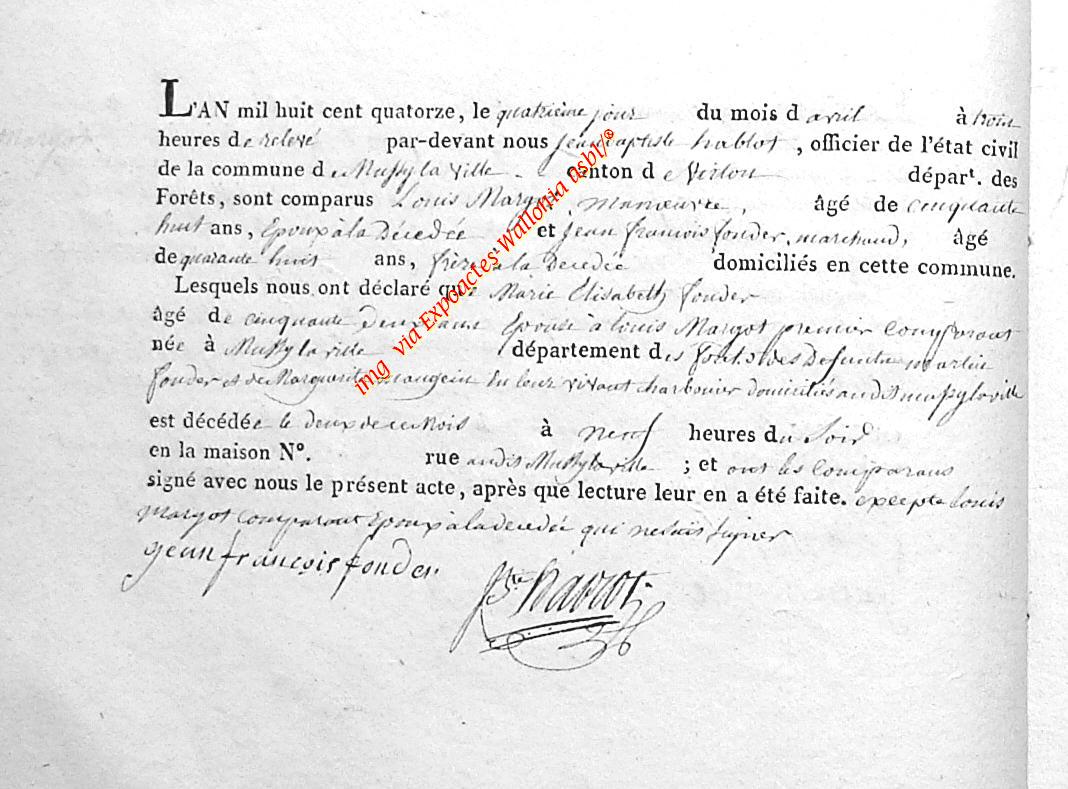 L'AN mil huit cent quatorze, le quatrième jour du mois d avril à trois
heures de relevé par-devant nous jean baptiste hablot, officier de l'état civil
de la commune d e Mussy la ville canton d e Virtonépart. des
Forêts, sont comparus Louis Margot, manoeuvre, âgé de cinquante
huit ans, Epoux à la Décedée et jean francois fonder, marchand, âgé
de quarante huit ans, frère à la Decedée domiciliés en cette commune.
Lesquels nous ont déclaré que Marie Elisabeth fonder
âgé de cinquante deux ans Epouse à louis Margot premier Comparant
née à Mussy la ville département des forêts des Defunts martin
fonder et de Marguerite maugein En leur vivant charbonier domiciliés audit mussy la ville
est décédée le deux de ce mois à neuf heures du Soir
en la maison N°. rue audit Mussy la ville ; et ont les Comparans
signé avec nous le présent acte, après que lecture leur en a été faite. excepté louis
Margot comparant Epoux à la decedée qui ne sais signer
jean francois fonder
JBte Hablot
img via Expoactes-Wallonia asbl/®